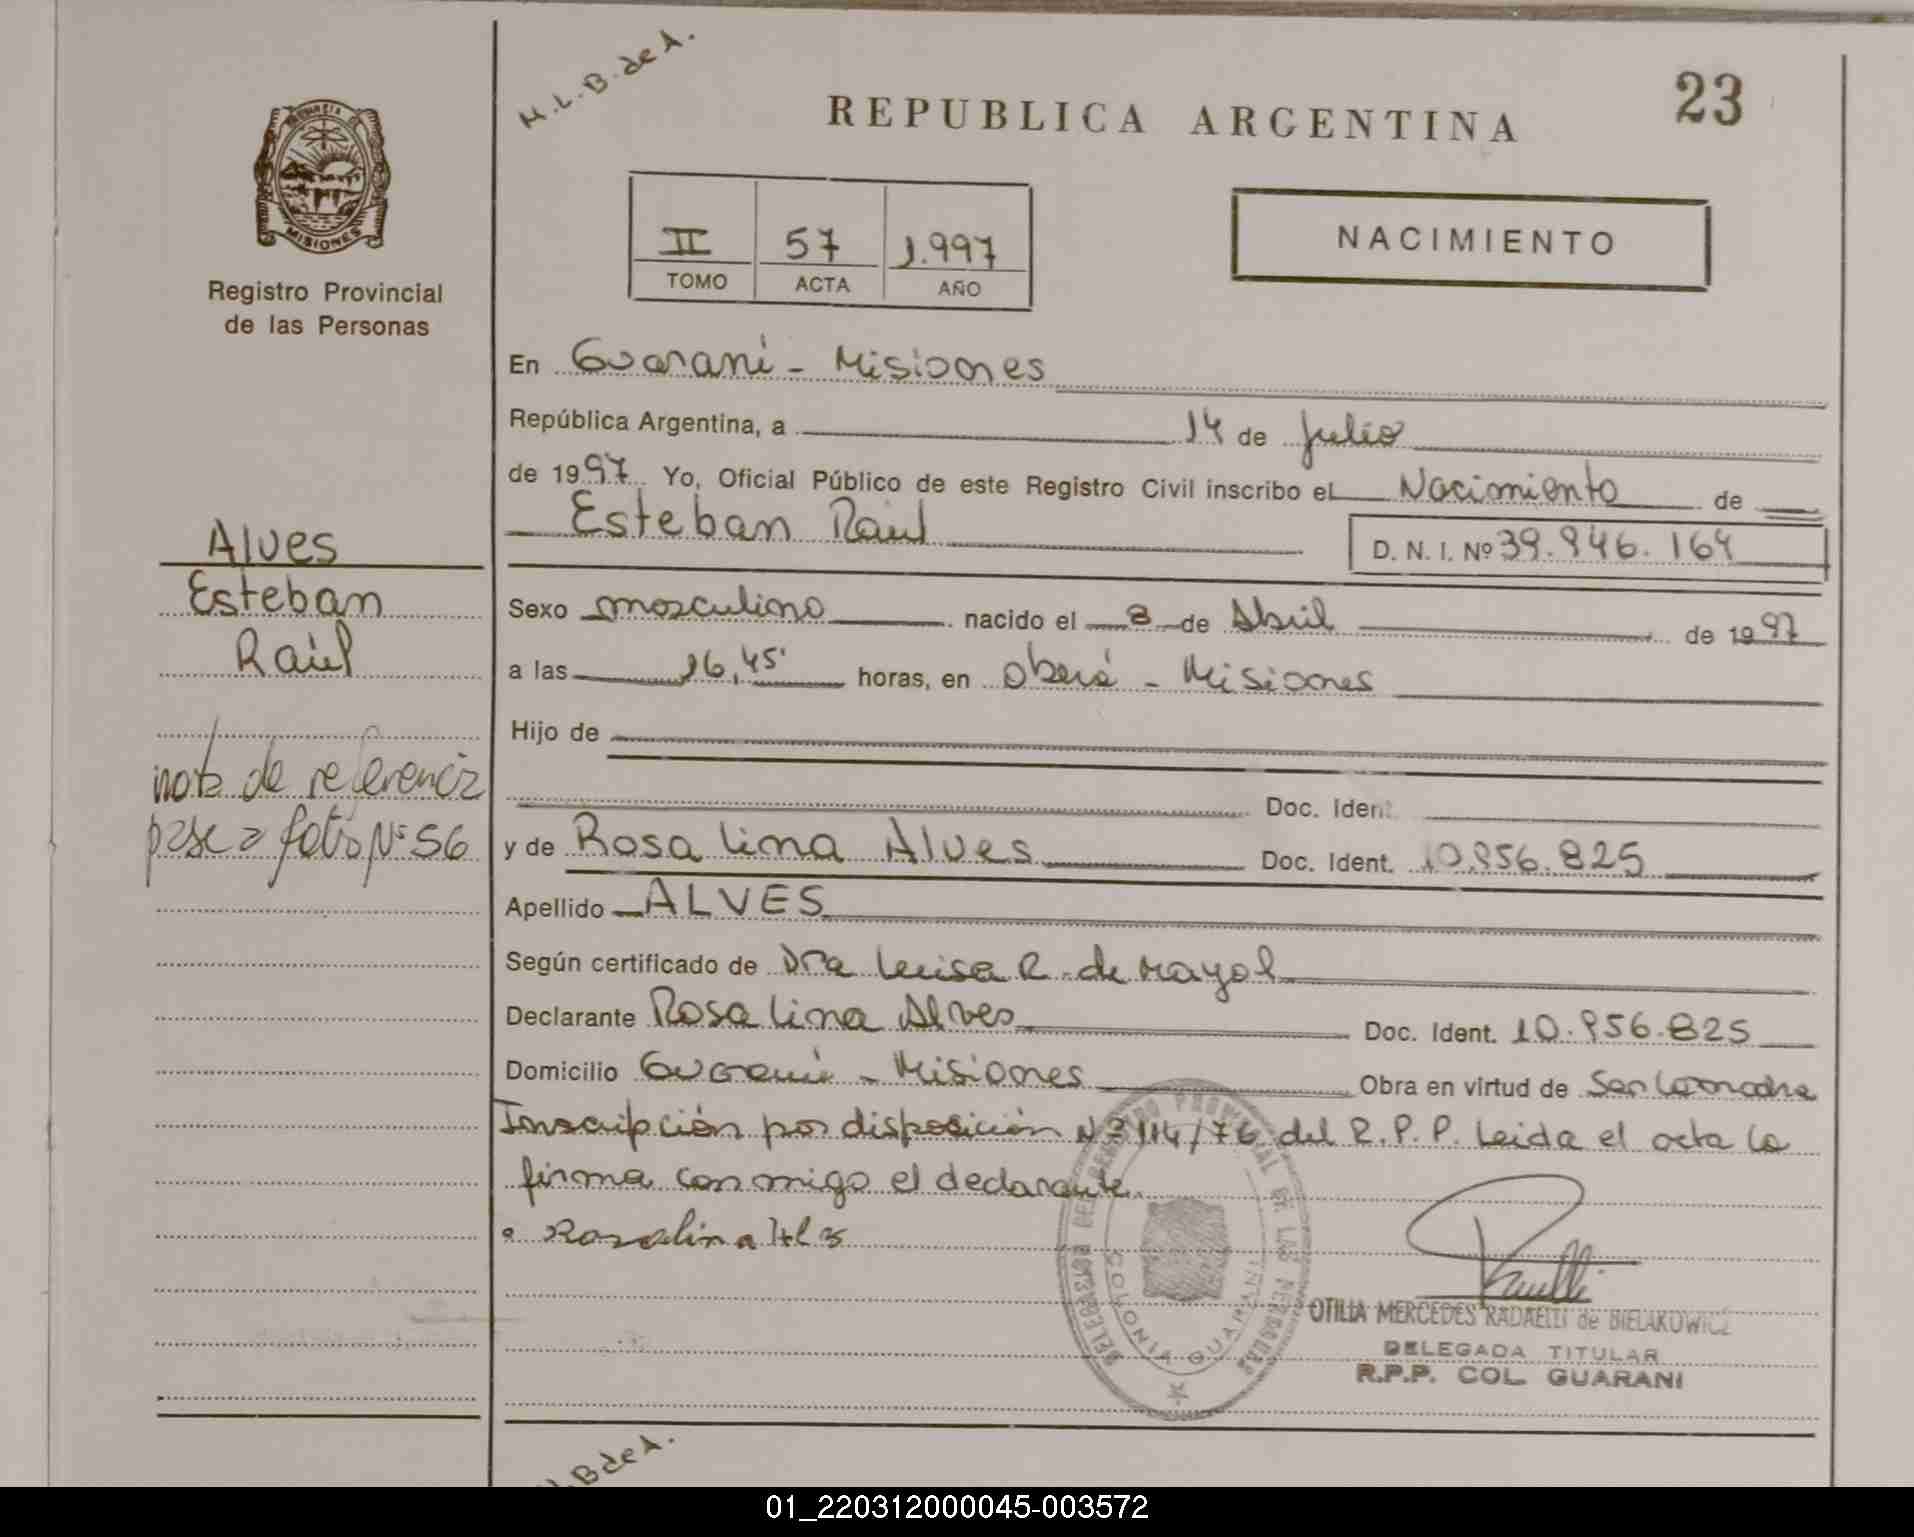 M.L.B. de A.
REPUBLICA ARGENTINA
23
MISIONES
Registro Provincial
de las Personas
II 57 1.997
TOMO ACTA AÑO
NACIMIENTO
En Guaraní - Misiones
República Argentina, a 14 de Julio
de 1997 Yo, Oficial Público de este Registro Civil inscribo el Nacimiento de
Esteban Raúl
D. N. I. Nº 39.946.164
Alves
Esteban
Raúl
Sexo masculino nacido el 8 de Abril de 1997
a las 16,45' horas, en Oberá - Misiones
Hijo de
Doc. Ident.
nota de referencia
pase a folio Nº 56
y de Rosa Lina Alves Doc. Ident. 10.956.825
Apellido ALVES
Según certificado de Dra Luisa R. de Mayol
Declarante Rosa Lina Alves Doc. Ident. 10.956.825
Domicilio Guaraní - Misiones Obra en virtud de Ser La madre
Inscripción por disposición Nº 114/76 del R.P.P. Leida el acta la
firma con migo el declarante.
Rosalina
DELEGACION DEL REGISTRO PROVINCIAL DE LAS PERSONAS
COLONIA GUARANI
OTILIA MERCEDES RADAELLI de BIELAKOWICZ
DELEGADA TITULAR
R.P.P. COL. GUARANI
B de A.
01_220312000045-003572